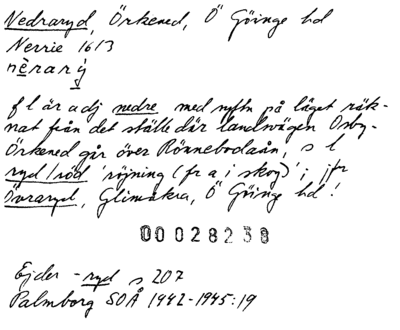 Nedraryd, Örkened, Ö Göinge hd
Nerrie 1613
nèrarý
f l är adj nedre med syftn på läget räk-
nat från det ställe där landsvägen Osby-
Örkened går över Rönnebodaån, s l
ryd/röd 'röjning (fr a i skog)'; jfr
Övraryd, Glimåkra, Ö Göinge hd!
00028238
Ejder -ryd s 207
Palmborg SOÅ 1942-1945:19